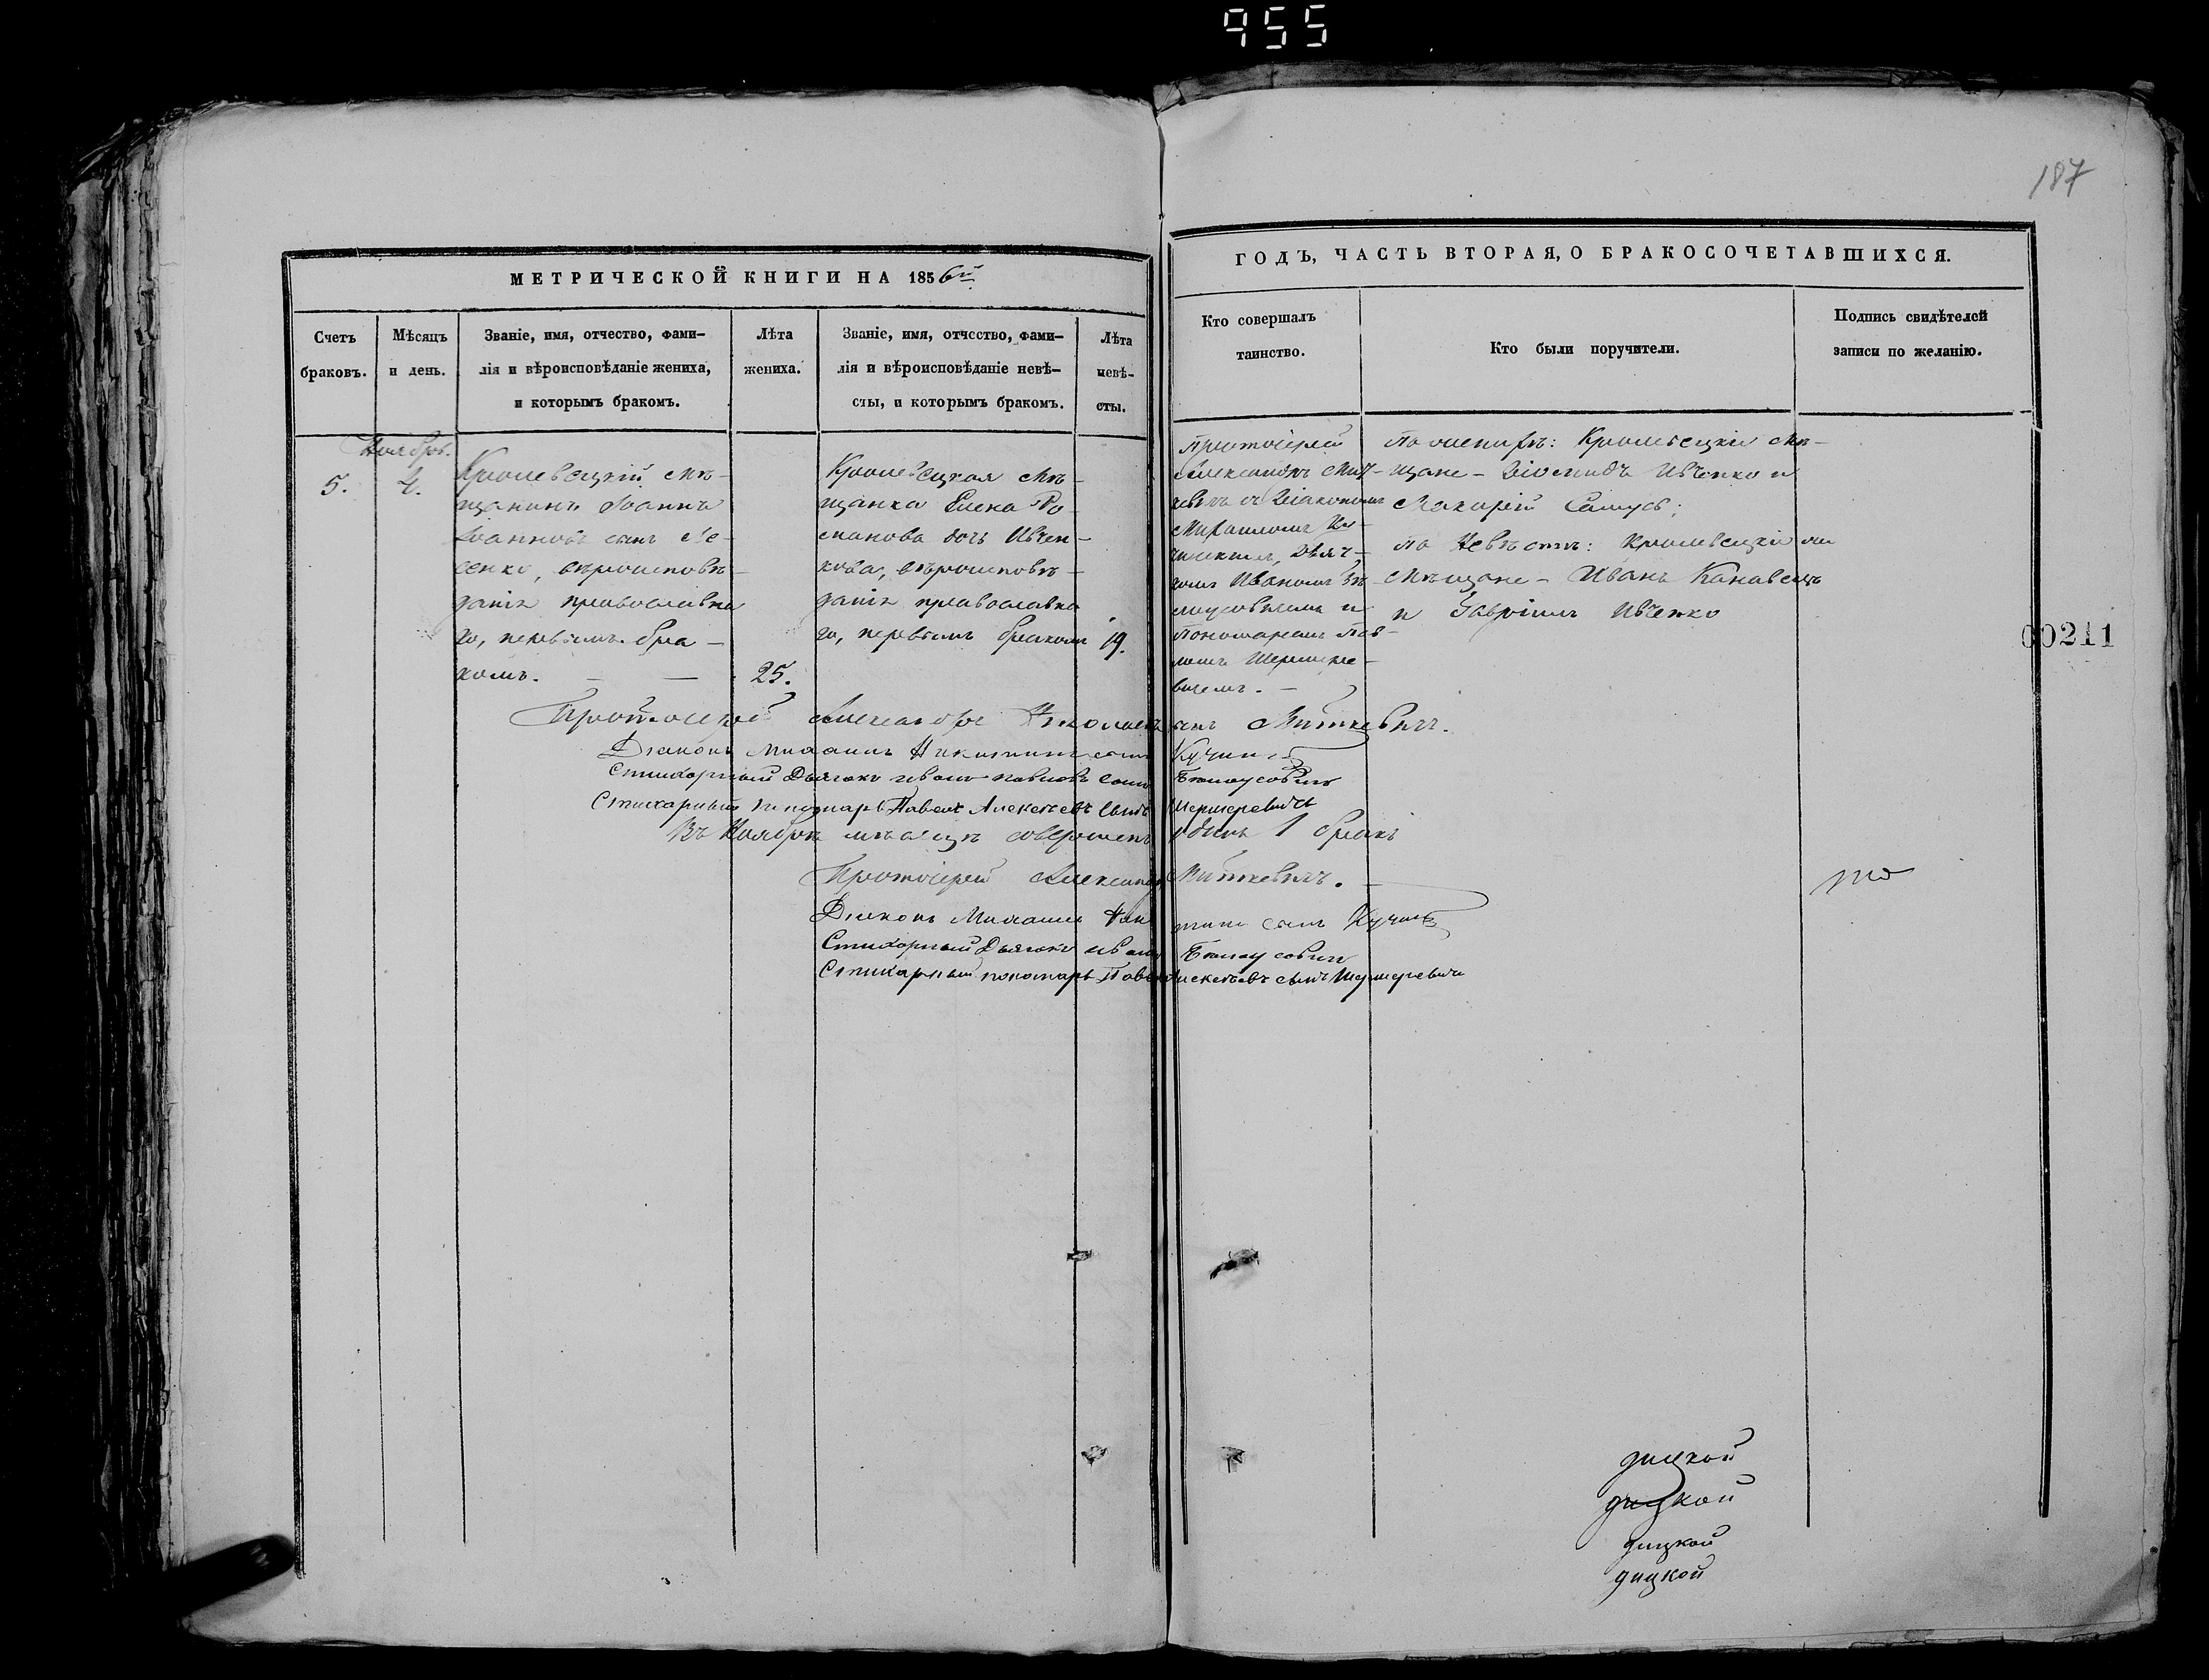 955
187
МЕТРИЧЕСКОЙ КНИГИ НА 1856й
ГОДЪ, ЧАСТЬ ВТОРАЯ, О БРАКОСОЧЕТАВШИХСЯ.
Счетъ
браковъ.
Мѣсяцъ
и день.
Званіе, имя, отчество, фами-
лія и вѣроисповѣданіе жениха,
и которымъ бракомъ.
Лѣта
жениха.
Званіе, имя, отчество, фами-
лія и вѣроисповѣданіе невѣ-
сты, и которымъ бракомъ.
Лѣта
невѣ-
сты.
Кто совершалъ
таинство.
Кто были поручители.
Подпись свидѣтелей
записи по желанію.
Ноябрь.
5.
4.
Кролевецкій мѣ-
щанинъ Іоаннъ
Іоанновъ сынъ
сенко, вѣроисповѣ-
данія православна
го, первымъ бра-
комъ. — —
25.
Кролевецкая мѣ-
щанка Елена Ро-
манова дочь Ивчен-
кова, вѣроисповѣ-
данія православна
го, первымъ бракомъ
19.
Протоіерей
Александръ Мит-
кевичъ съ Діакономъ
Михаиломъ Ку-
Дьяч-
комъ Иваномъ Бѣ-
лоусовичемъ и
Пономаремъ Пав-
ломъ Шермере-
вичемъ. —
По женихѣ: Кролевецкіе мѣ-
щане - Діомидъ Ивченко и
Макарій Самусь;
по Невѣстѣ: Кролевецкіе
мѣщане - Иванъ Канавецъ
и Гавріилъ Ивченко
00211
Протоіерей Александръ Николаевъ сынъ Миткевичъ.
Діаконъ Михаилъ Никитинъ сынъ
Стихарный Дьячокъ Иванъ Павловъ сынъ Бѣлоусовичъ
Стихарный пономарь Павелъ Алексѣевъ сынъ Шермеревичъ
Въ Ноябрѣ мѣсяцѣ совершенъ одинъ 1 бракъ
Протоіерей Александръ Миткевичъ.
Діаконъ Михаилъ Никитинъ сынъ
Стихарный Дьячокъ Иванъ Бѣлоусовичъ
Стихарный пономарь Павелъ Алексѣевъ сынъ Шермеревичъ
дицкой
дицкой
дицкой
дицкой